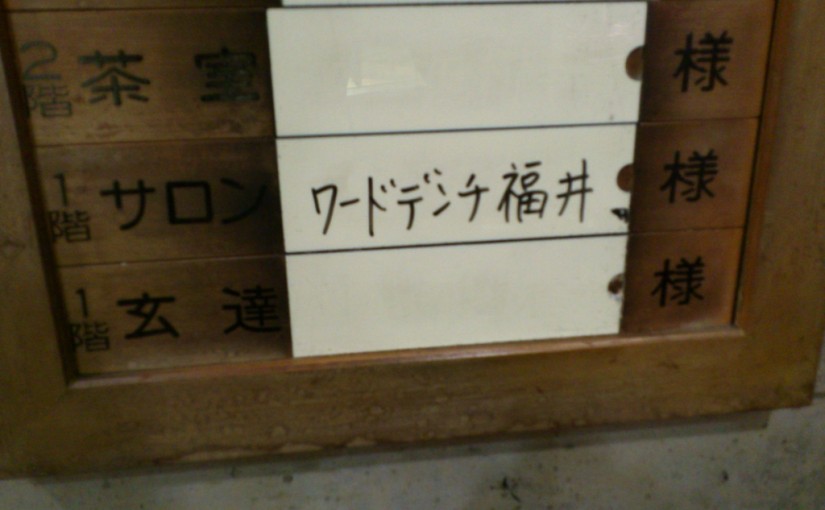 2階 茶室 様
1階 サロン ワードデンチ福井 様
1階 玄達 様